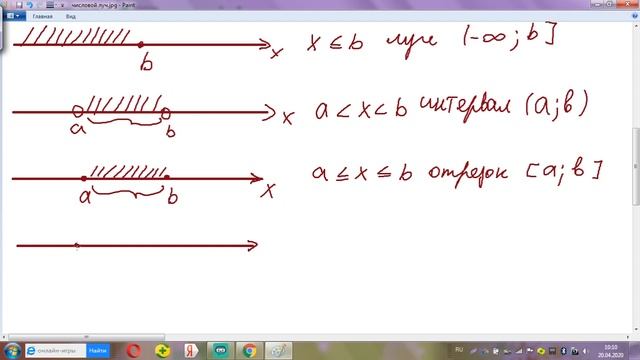 числовой луч.jpg - Paint
Главная Вид
b x x ≤ b луч (-∞; b]
a b x a < x < b интервал (a; b)
a b x a ≤ x ≤ b отрезок [a; b]
онлайн-игры Найти RU 10:10
20.04.2020